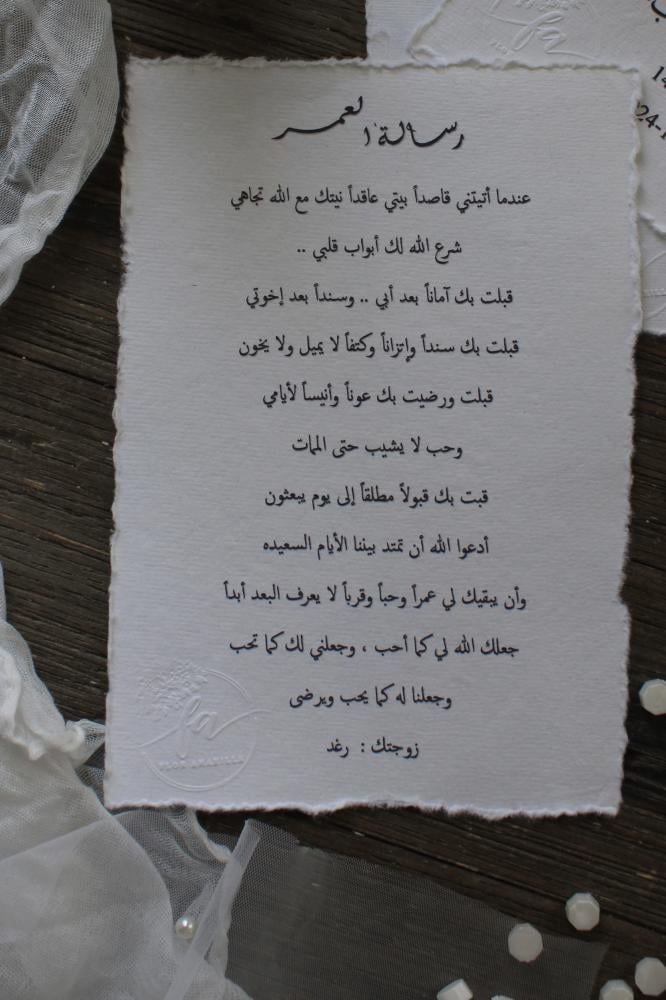 رسالة العمر
عندما أتيتني قاصداً بيتي عاقداً نيتك مع الله تجاهي
شرع الله لك أبواب قلبي ..
قبلت بك آماناً بعد أبي .. وسنداً بعد إخوتي
قبلت بك سنداً وإتزاناً وكتفاً لا يميل ولا يخون
قبلت ورضيت بك عوناً وأنيساً لأيامي
وحب لا يشيب حتى الممات
قبت بك قبولاً مطلقاً إلى يوم يبعثون
أدعوا الله أن تمتد بيننا الأيام السعيده
وأن يبقيك لي عمراً وحباً وقرباً لا يعرف البعد أبداً
جعلك الله لي كما أحب ، وجعلني لك كما تحب
وجعلنا له كما يحب ويرضى
زوجتك : رغد
fa